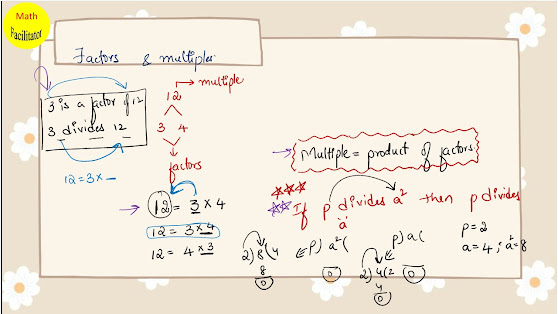 Math
Facilitator
Factors & multiples
3 is a factor of 12
3 divides 12
12 = 3 × _
→ multiple
12
3 4
factors
→ 12 = 3 × 4
12 = 3 × 4
12 = 4 × 3
→ Multiple = product of factors
If p divides a² then p divides
a
p = 2
a = 4 ; a² = 8
2)8(4
8
0
p) a²(
0
p) a(
0
2)4(2
4
0